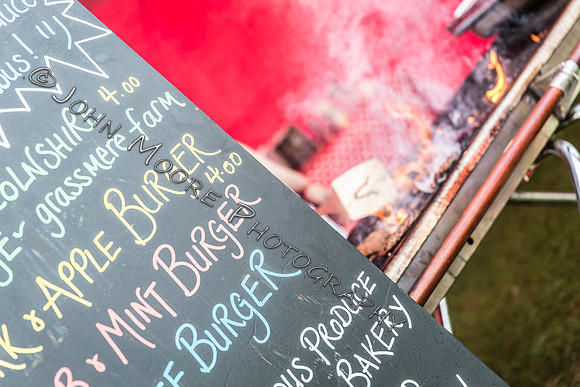 ous!!
OLNSHIRE 4.00
GE - grassmere farm
K & APPLE BURGER
B & MINT BURGER 4.60
EF BURGER
OUS PRODUCE
BAKERY
© JOHN MOORE PHOTOGRAPHY